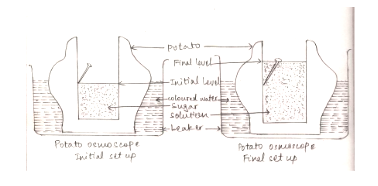 Potato
Final level
Initial level
coloured water
Sugar
solution
Beaker
Potato osmoscope
Initial set up
Potato osmoscope
Final set up